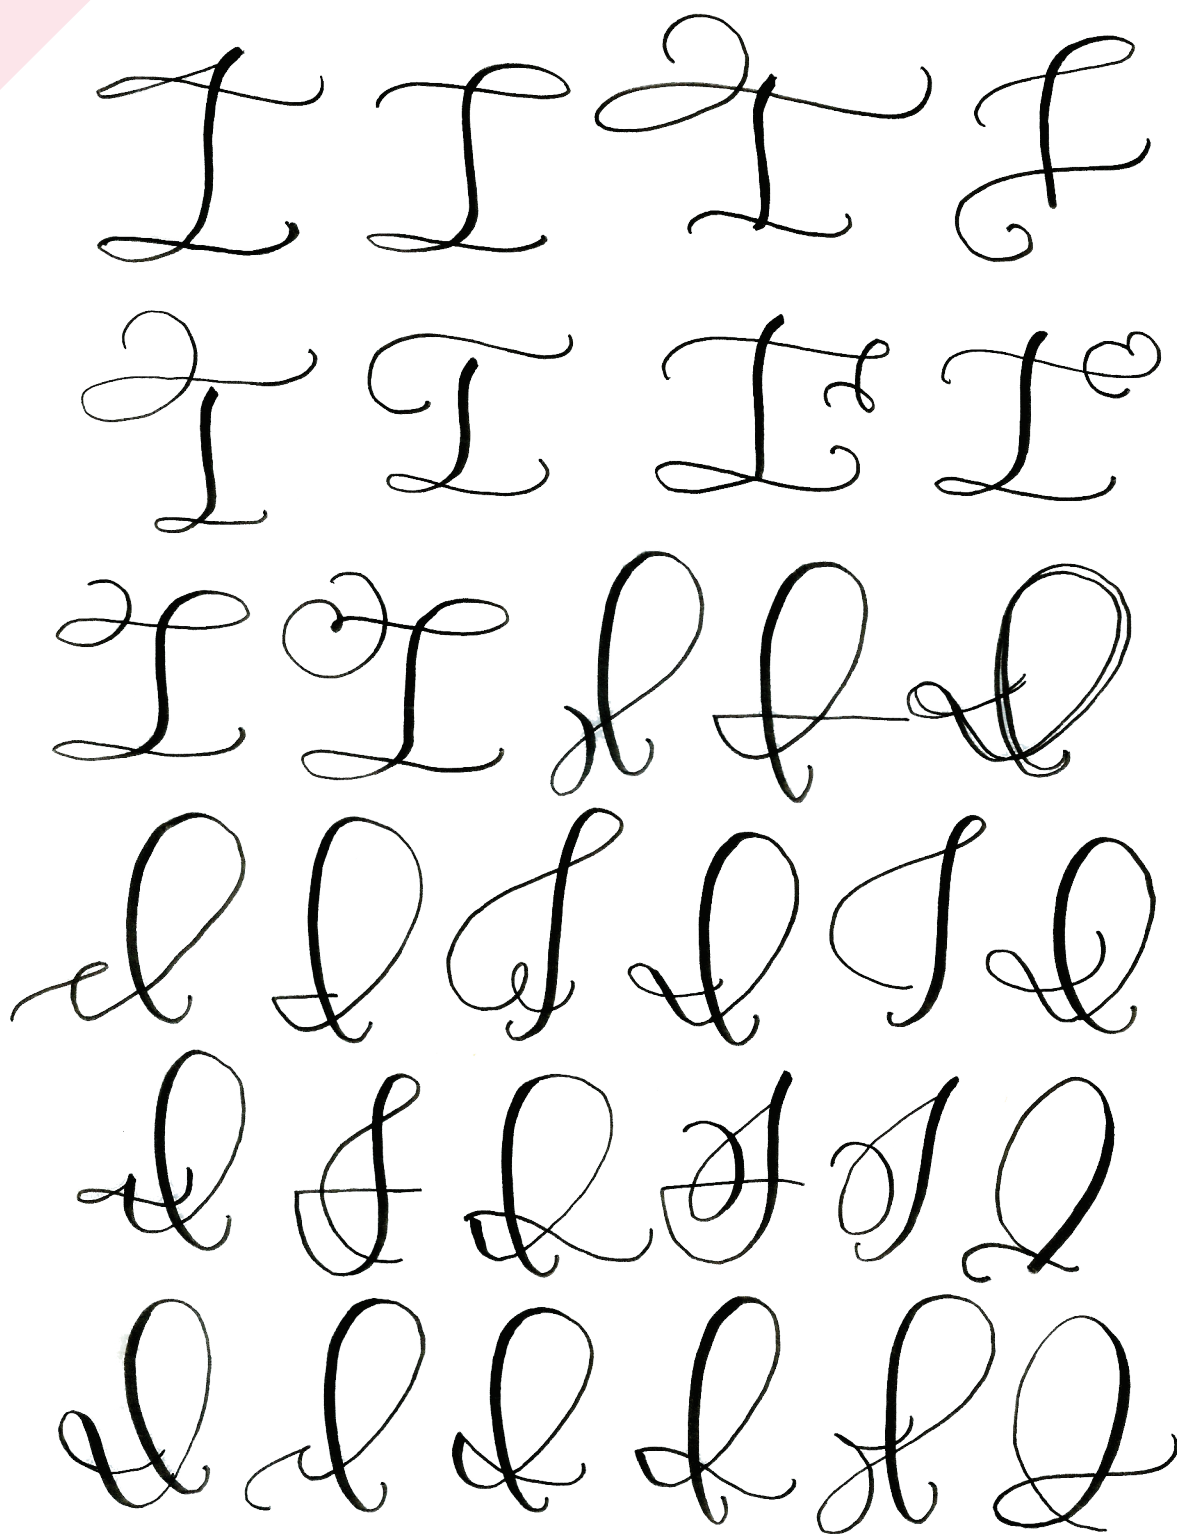 I I I I
I I I I
I I I I I
I I I I I I
I I I I I I
I I I I I I